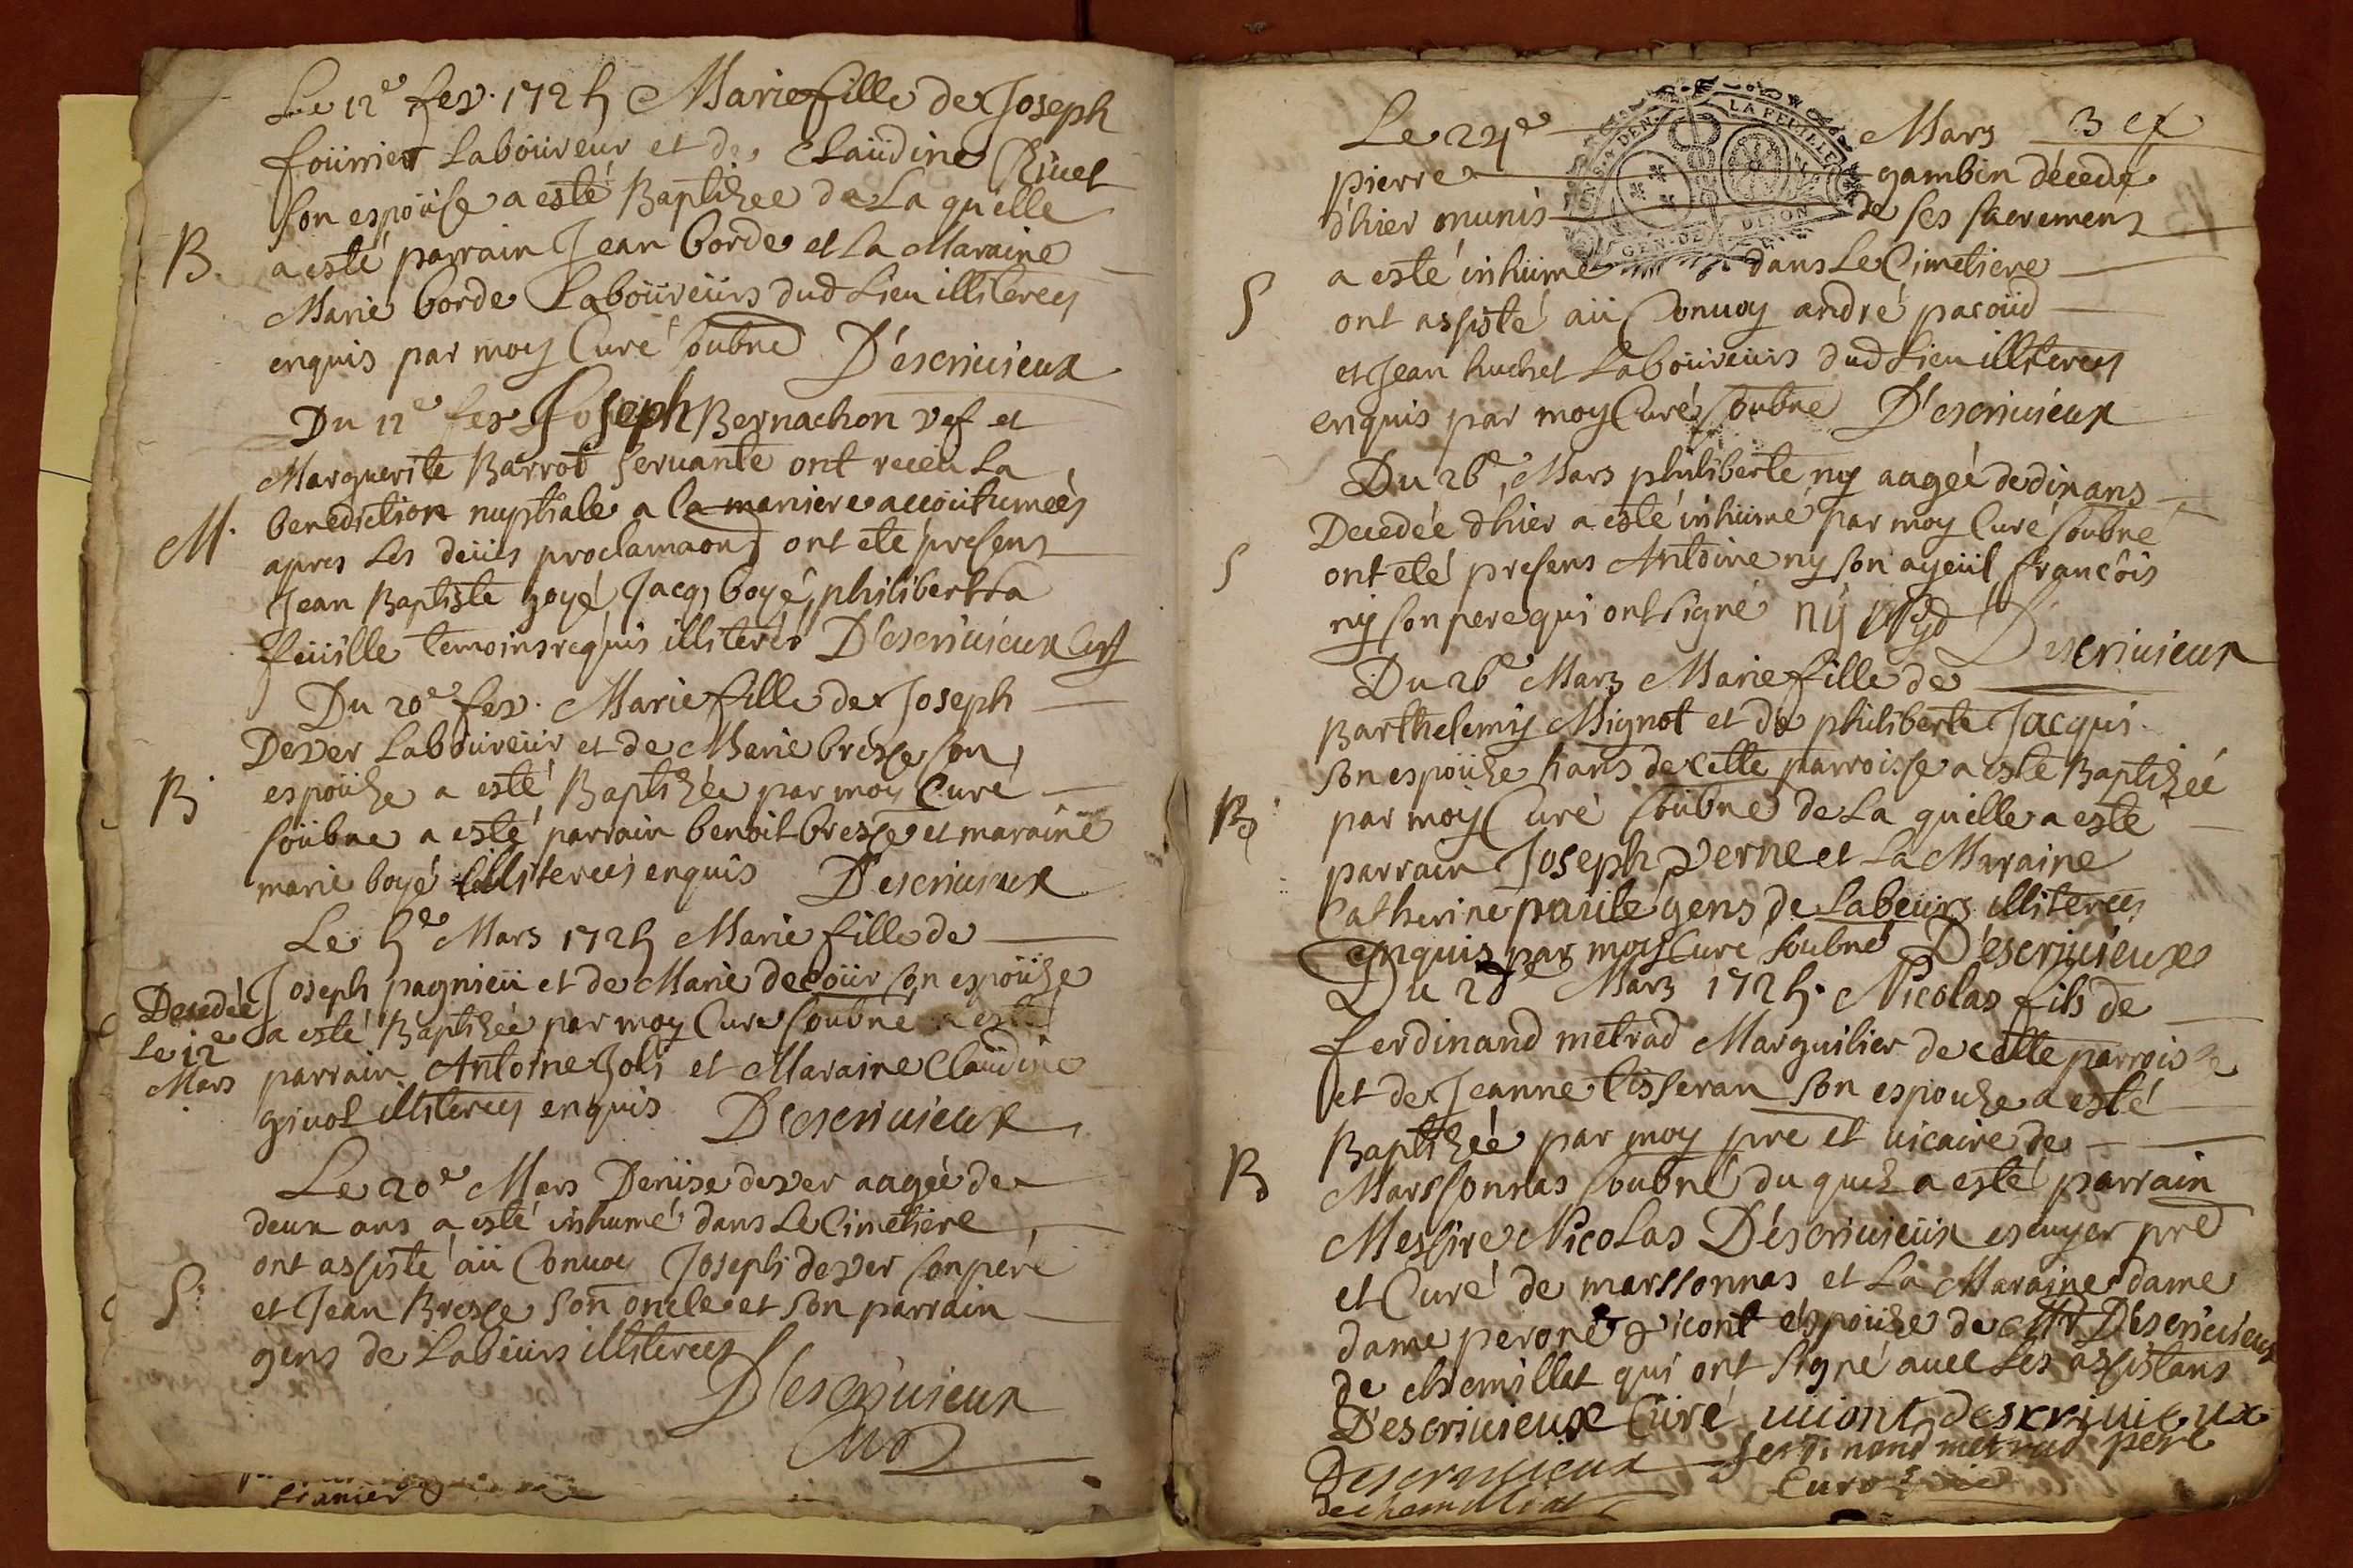 Le 12e fev. 1725 Marie fille de Joseph
foürnier Laboüreur et de Claüdine Rivet
son espoüse a esté Baptizee de La quelle
B. a esté parrain Jean borde et La Maraine
Marie borde Laboüreürs dud Lieu illiterees
enquis par moy Curé soubné D'escriuieux
Du 12e fev Joseph Bernachon vef et
Marguerite Barrot seruante ont receu La
M. benediction nuptiale a la maniere accoütumeés
apres Les deües proclamaons ont eté presens
Jean Baptiste goyé, Jacq, boyé, philibert La
feüille temoins requis illiterés D'escriuieux
Du 20e fev. Marie fille de Joseph
Dever Laboureür et de Marie bresse son
B espoüze a esté Baptizée par moy Curé
soübne a esté parrain benoit bresse et maraine
marie boyé illiterees enquis D'escriuieux
Le 5e Mars 1725 Marie fille de
Joseph pagnieü et de Marie decoür son espoüze
Decedée Le 12e Mars
a esté Baptizeé par moy Curé soubné a esté
parrain Antoine Joli et Maraine Claudine
givot illiterees enquis D'escriuieux
Le 20e Mars Denise dever aageé de
deux ans a esté inhumé dans Le Cimetiere
ont assisté aü Convoy Joseph dever son pere
S. et Jean Bresse son oncle et son parrain
gens de Labeürs illiterees
D'escriuieux
Curé
Le 24e Mars 3 ef
LA FEUILLE
DEN
GEN · DE DIJON
pierre gambin décedé
d'hier munis de ses sacremens
a esté inhümé dans Le Cimetiere
S ont assisté aü Convoy andré pacoüd
et Jean huchet Laboüreürs dud Lieu illiterees
enquis par moy Curé soubné D'escriuieux
Du 26e Mars philiberte ny aageé de dix ans
Decedée d'hier a esté inhümé par moy Curé soubné
S ont eté presens Antoine ny son ayeül françois
ny son pere qui ont signé ny D'escriuieux
Du 26e Mars Marie fille de
Barthelemy Mignot et de philiberte Jacqui
son espoüze hans de cette parroisse a esté Baptizeé
B par moy Curé soübné de La quelle a esté
parrain Joseph verne et La Maraine
Catherine paulé gens de Labeürs illiterees
enquis par moy Curé soubné D'escriuieux
Du 28e Mars 1725. Nicolas fils de
ferdinand metrad Marguilier de cette parroisse
et de Jeanne tisseran son espouze a esté
Baptizeé par moy pre et vicaire de
B Marssonnas soubné du quel a esté parrain
Messire Nicolas D'escriuieüx escuyer pre
et Curé de marssonnas et La Maraine dame
dame perone vicont espoüze de Mr D'escriuieux
de chemillat qui ont signé avec Les assistans
D'escriuieux Curé uiont descriuieux
Descriuieux ferdinand metrad pere
dechemillat